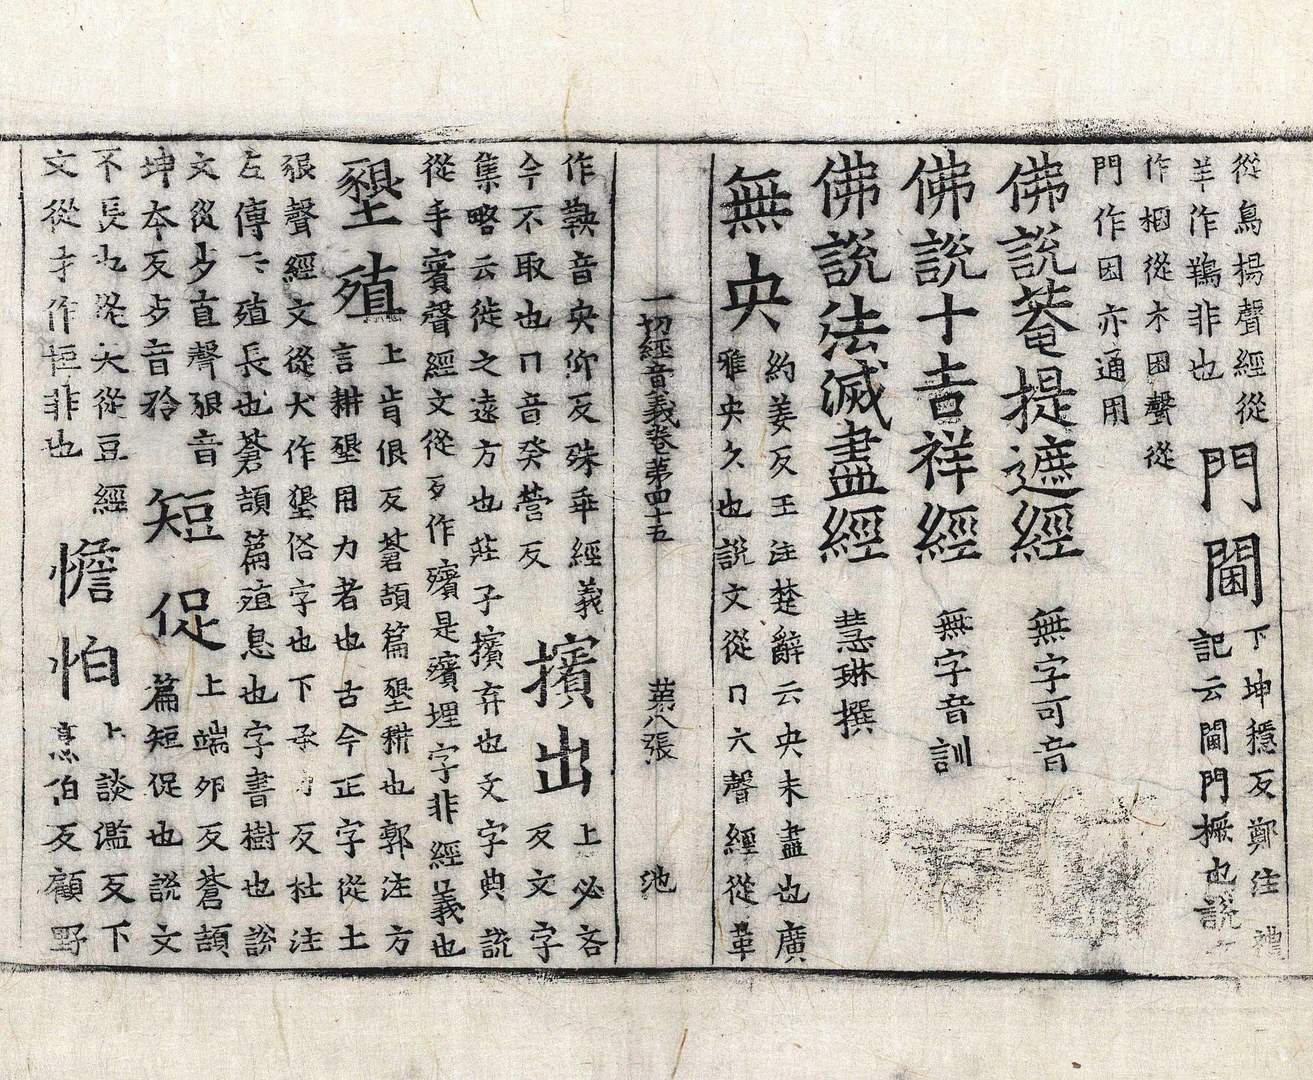 從鳥揚聲經從
羊作鸉非也
門閫
下坤穩反鄭注禮
記云閫門橛也說
作梱從木困聲從
門作困亦通用
佛說菴提遮經 無字可音
佛說十吉祥經 無字音訓
佛說法滅盡經 慧琳撰
無央
約姜反王注楚辭云央未盡也廣
雅央久也說文從冂六聲經從革
一切經音義卷第四十五 第八張 池
作鞅音央仰反殊乖經義
今不取也冂音癸營反
擯出
上必吝
反文字
集略云徙之遠方也莊子擯弃也文字典說
從手賓聲經文從歹作殯是殯埋字非經義也
墾殖
上肯佷反蒼頡篇墾耕也郭注方
言耕墾用力者也古今正字從土
豤聲經文從犬作墾俗字也下承力反杜注
左傳云殖長也蒼頡篇殖息也字書樹也說
文從歹直聲豤音
坤本反歹音矝
短促
上端夘反蒼頡
篇短促也說文
不長也從矢從豆經
文從扌作恒非也
憺怕
上談濫反下
烹伯反顧野